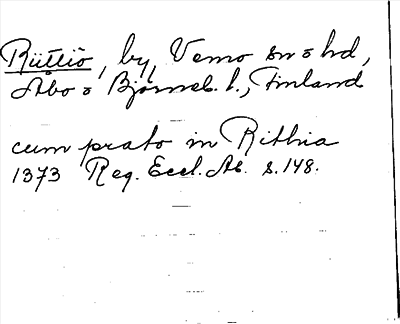 Rüttiö, by, Vemo sn o hd,
Åbo o Björneb. l., Finland
cum prato in Rithia
1373 Reg. Eccl. Ab. s. 148.